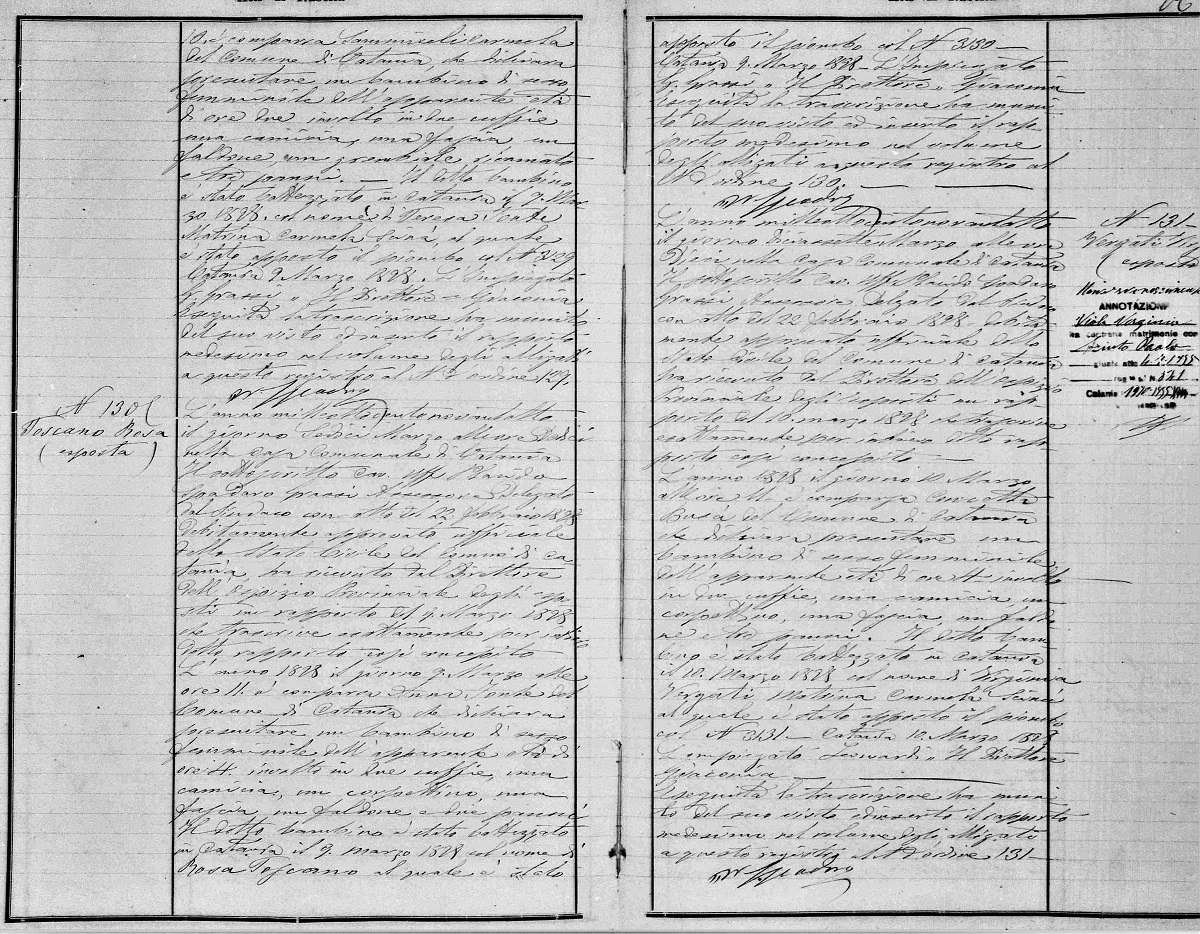 10. è comparsa Sammiceli Carmela
del Comune di Catania, che dichiara
presentare un bambino di sesso
femminile dell'apparente età
di ore due involto in due cuffie
una camicia, una fascia, un
faldone, un grembiale ricamato
e tre panni. — Il detto bambino
è stato battezzato in Catania il 9. Mar
zo 1898. col nome di Teresa
Matrina Carmela Scinà, al quale
è stato apposto il piombo col N 3129
Catania 9 Marzo 1898. L'Impiegato
G. Grassi = Il Direttore = Giaconia
Eseguita la trascrizione ha munito
del suo visto ed inserto il rapporto
medesimo nel volume degli allegati
a questo registro al N d'ordine 129.
N 130
Toscano Rosa
(esposta)
L'anno milleottocentonovantotto
il giorno Sedici Marzo alle ore Dodici
nella casa Comunale di Catania
Il sottoscritto Cav. Uff. Placido
Spadaro Grassi Assessore Delegato
dal Sindaco con atto del 22 febbraio 1898
debitamente approvato ufficiale
dello Stato Civile del Comune di Ca
tania, ha ricevuto dal Direttore
dell'Ospizio Provinciale degli espo
sti un rapporto del 9. Marzo 1898
che trascrive esattamente per intero
detto rapporto così concepito
L'anno 1898 il giorno 9. Marzo alle
ore 11. è comparsa Anna Conte del
Comune di Catania che dichiara
presentare un bambino di sesso
femminile dell'apparente età di
ore 4. involto in due cuffie, una
camicia, un corpettino, una
fascia, un faldone e due panni
Il detto bambino è stato battezzato
in Catania il 9. marzo 1898 col nome di
Rosa Toscano al quale è stato
apposto il piombo col N 3130 —
Catania 9. Marzo 1898 — L'Impiegato
G. Grassi = Il Direttore = Giaconia
Eseguita la trascrizione ha muni
to del suo visto ed inserto il rap
porto medesimo nel volume
degli allegati a questo registro al
N d'ordine 130. —
N 131
Vergati
(esposta
ANNOTAZIONE
Viola Virginia
ha contratto matrimonio con
Pinto Paolo
Catania
L'anno milleottocentonovantotto
il giorno diciassette Marzo alle ore
Dieci nella casa Comunale di Catania
Il sottoscritto Cav. Uff. Placido Spadaro
Grassi Assessore Delegato dal Sindaco
con atto del 22 febbraio 1898 debita
mente approvato ufficiale dello
Stato Civile del Comune di Catania
ha ricevuto dal Direttore dell'Ospizio
Provinciale degli esposti un rap
porto del 10. marzo 1898 che trascrive
esattamente per intero detto rap
porto così concepito —
L'anno 1898 il giorno 10. Marzo
alle ore 11. è comparsa Concetta
Buscà del Comune di Catania
che dichiara presentare un
bambino di sesso femminile
dell'apparente età di ore 4 involto
in due cuffie, una camicia un
corpettino, una fascia, un faldo
ne e tre panni. Il detto bam
bino è stato battezzato in Catania
il 10. Marzo 1898 col nome di Virginia
Vergati Matrina Carmela Scinà
al quale è stato apposto il piombo
col N 3131 — Catania 10. Marzo 1898
L'impiegato Leonardi = Il Direttore
Giaconia —
Eseguita la trascrizione ha muni
to del suo visto ed inserto il rapporto
medesimo nel volume degli allegati
a questo registro al N d'ordine 131 —